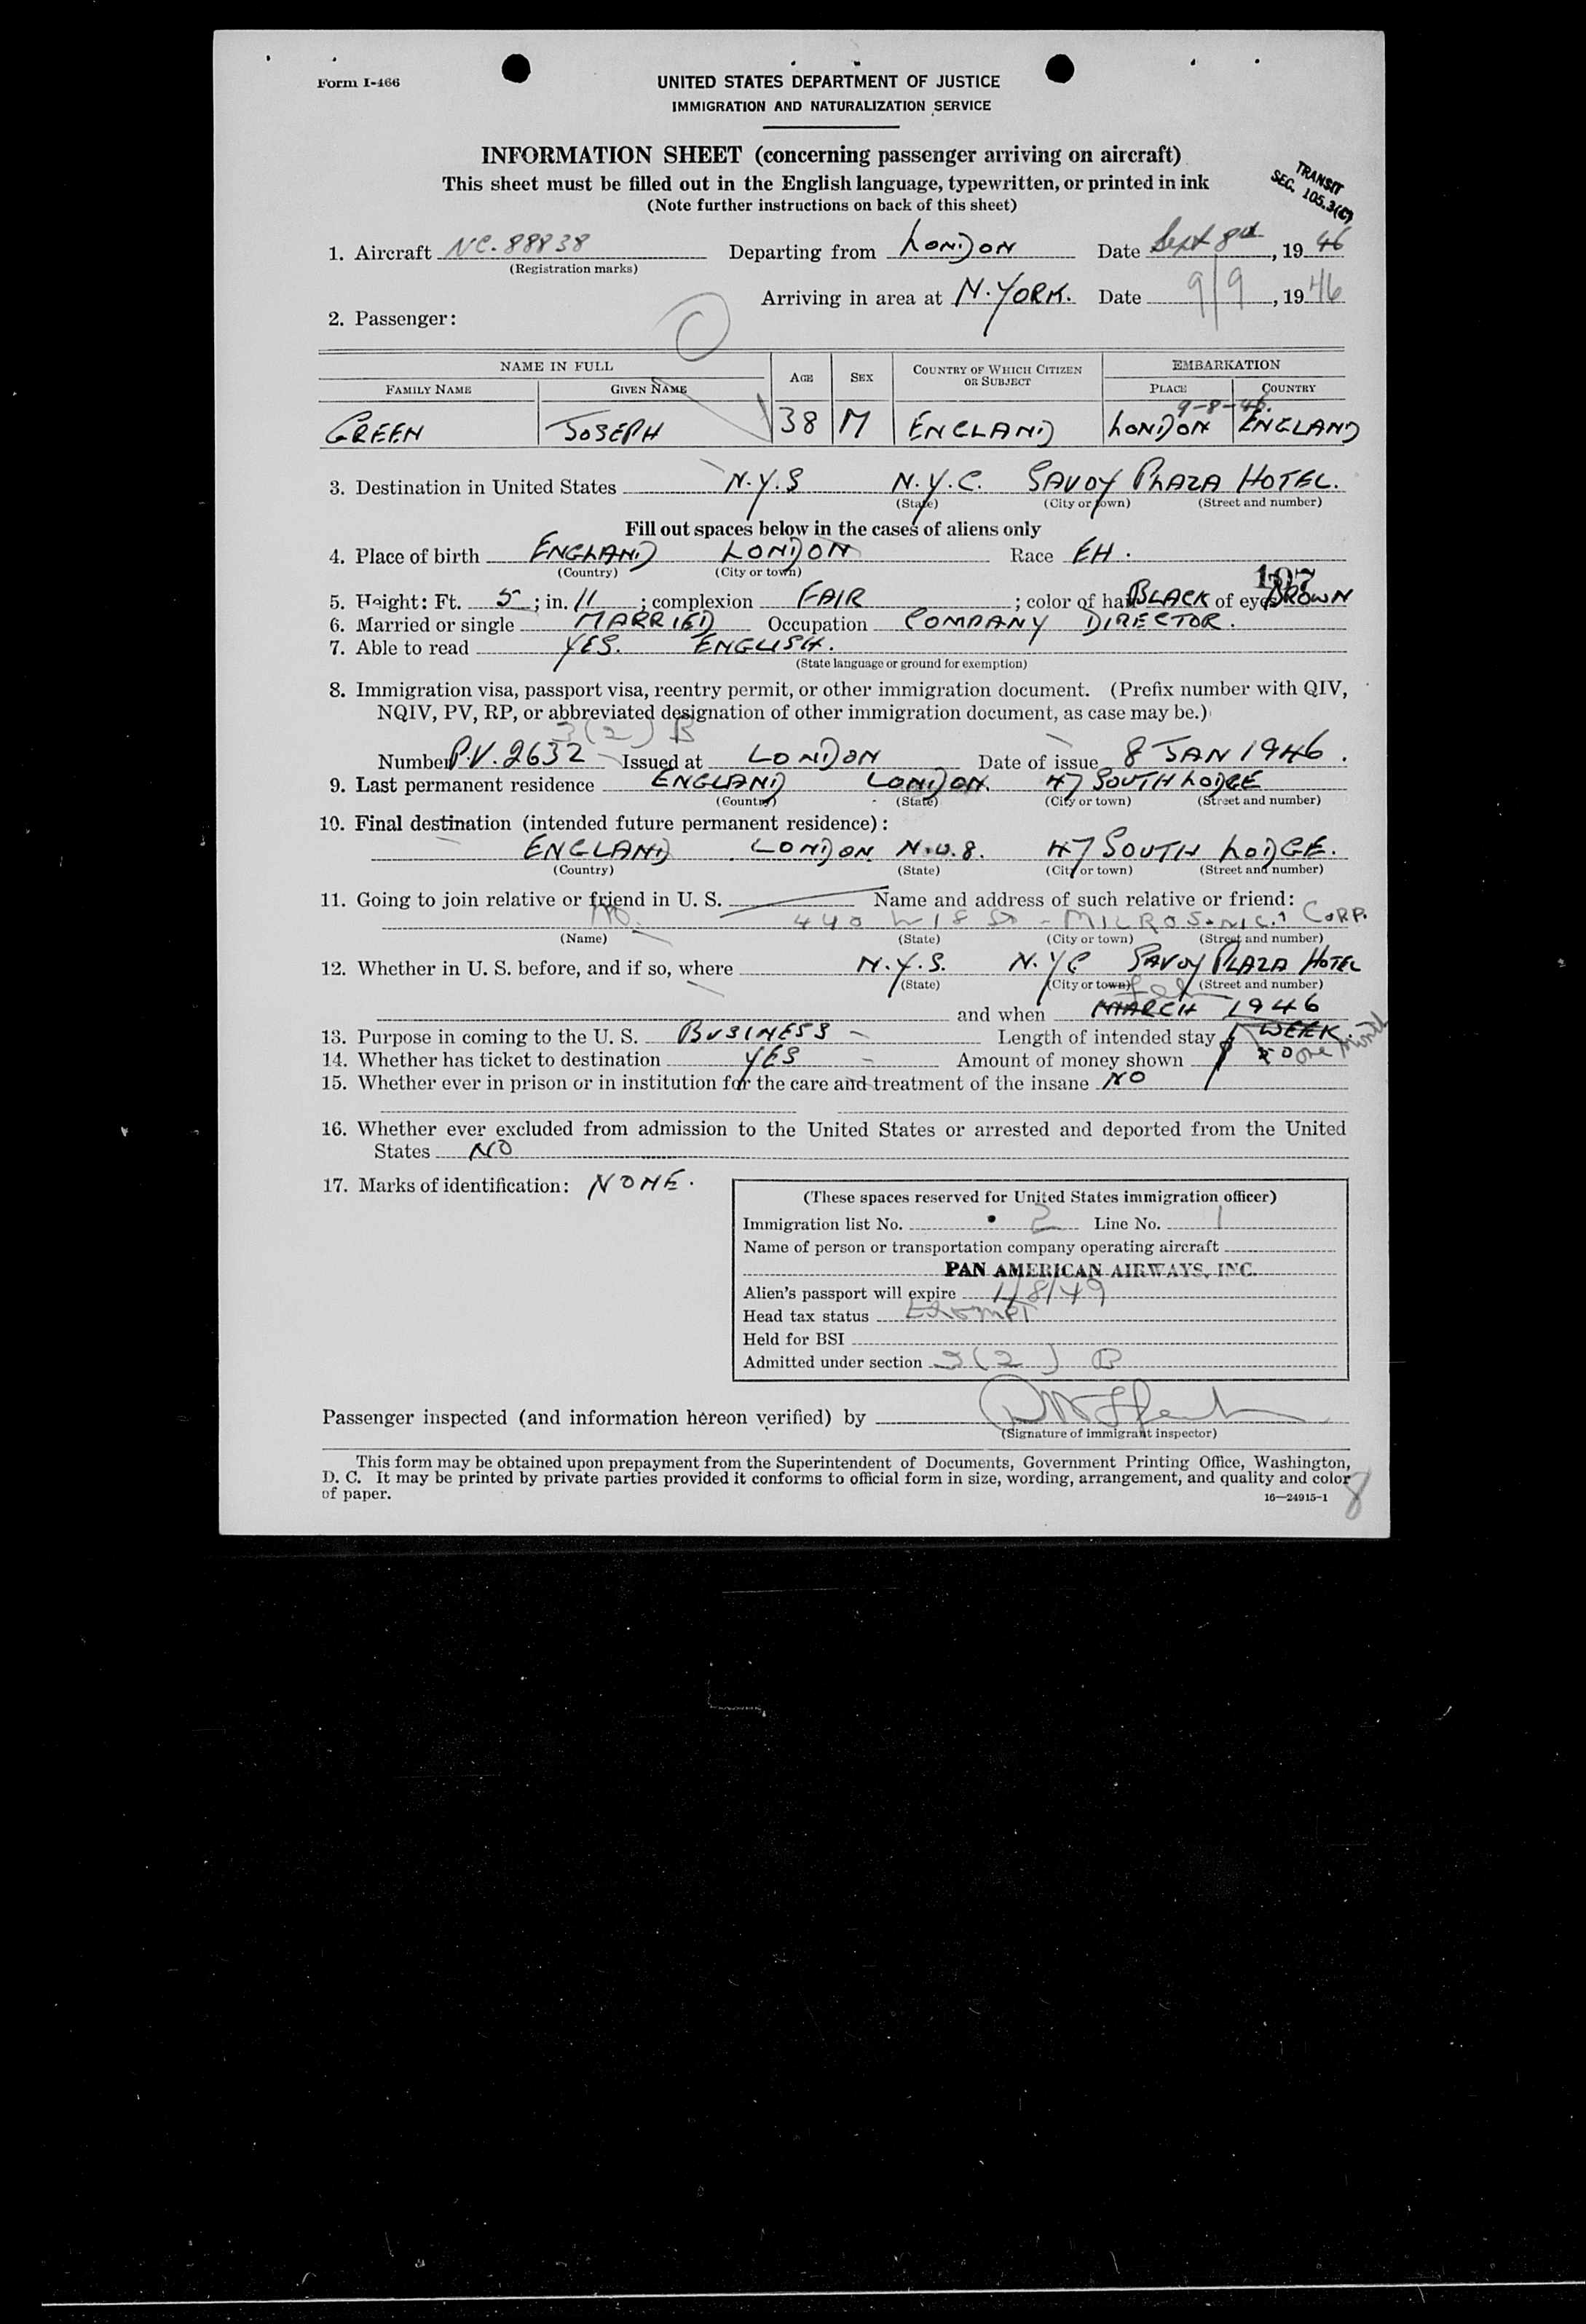 Form I-466
UNITED STATES DEPARTMENT OF JUSTICE
IMMIGRATION AND NATURALIZATION SERVICE
INFORMATION SHEET (concerning passenger arriving on aircraft)
This sheet must be filled out in the English language, typewritten, or printed in ink
(Note further instructions on back of this sheet)
TRANSIT
SEC. 105.3(C)
1. Aircraft NC-88838 Departing from LONDON Date Sept 8th, 1946
(Registration marks)
Arriving in area at N. YORK. Date 9/9, 1946
2. Passenger:
NAME IN FULL AGE SEX COUNTRY OF WHICH CITIZEN OR SUBJECT EMBARKATION
FAMILY NAME GIVEN NAME PLACE COUNTRY
9-8-46.
GREEN JOSEPH 38 M ENGLAND LONDON ENGLAND
3. Destination in United States N.Y.S N.Y.C. SAVOY PLAZA HOTEL.
(State) (City or town) (Street and number)
Fill out spaces below in the cases of aliens only
4. Place of birth ENGLAND LONDON Race EH.
(Country) (City or town)
107
5. Height: Ft. 5; in. 11; complexion FAIR; color of hair BLACK of eyes BROWN
6. Married or single MARRIED Occupation COMPANY DIRECTOR.
7. Able to read YES. ENGLISH.
(State language or ground for exemption)
8. Immigration visa, passport visa, reentry permit, or other immigration document. (Prefix number with QIV,
NQIV, PV, RP, or abbreviated designation of other immigration document, as case may be.)
3(2) B
Number P.V. 2632 Issued at LONDON Date of issue 8 JAN 1946.
9. Last permanent residence ENGLAND LONDON. 47 SOUTH LODGE
(Country) (State) (City or town) (Street and number)
10. Final destination (intended future permanent residence):
ENGLAND LONDON N.W.8. 47 SOUTH LODGE.
(Country) (State) (City or town) (Street and number)
11. Going to join relative or friend in U. S. Name and address of such relative or friend:
no 440 W 18 St - MICROSONIC CORP.
(Name) (State) (City or town) (Street and number)
12. Whether in U. S. before, and if so, where N.Y.S. N.Y.C SAVOY PLAZA HOTEL
(State) (City or town) (Street and number)
Feb
and when MARCH 1946
13. Purpose in coming to the U. S. BUSINESS Length of intended stay 1 WEEK.
one month
14. Whether has ticket to destination YES Amount of money shown $ 20
15. Whether ever in prison or in institution for the care and treatment of the insane NO
16. Whether ever excluded from admission to the United States or arrested and deported from the United
States NO
17. Marks of identification: NONE.
(These spaces reserved for United States immigration officer)
Immigration list No. 2 Line No. 1
Name of person or transportation company operating aircraft
PAN AMERICAN AIRWAYS, INC.
Alien's passport will expire 1/8/49
Head tax status Exempt
Held for BSI
Admitted under section 3(2) B
Passenger inspected (and information hereon verified) by
(Signature of immigrant inspector)
This form may be obtained upon prepayment from the Superintendent of Documents, Government Printing Office, Washington,
D. C. It may be printed by private parties provided it conforms to official form in size, wording, arrangement, and quality and color
of paper.
16—24915-1
8